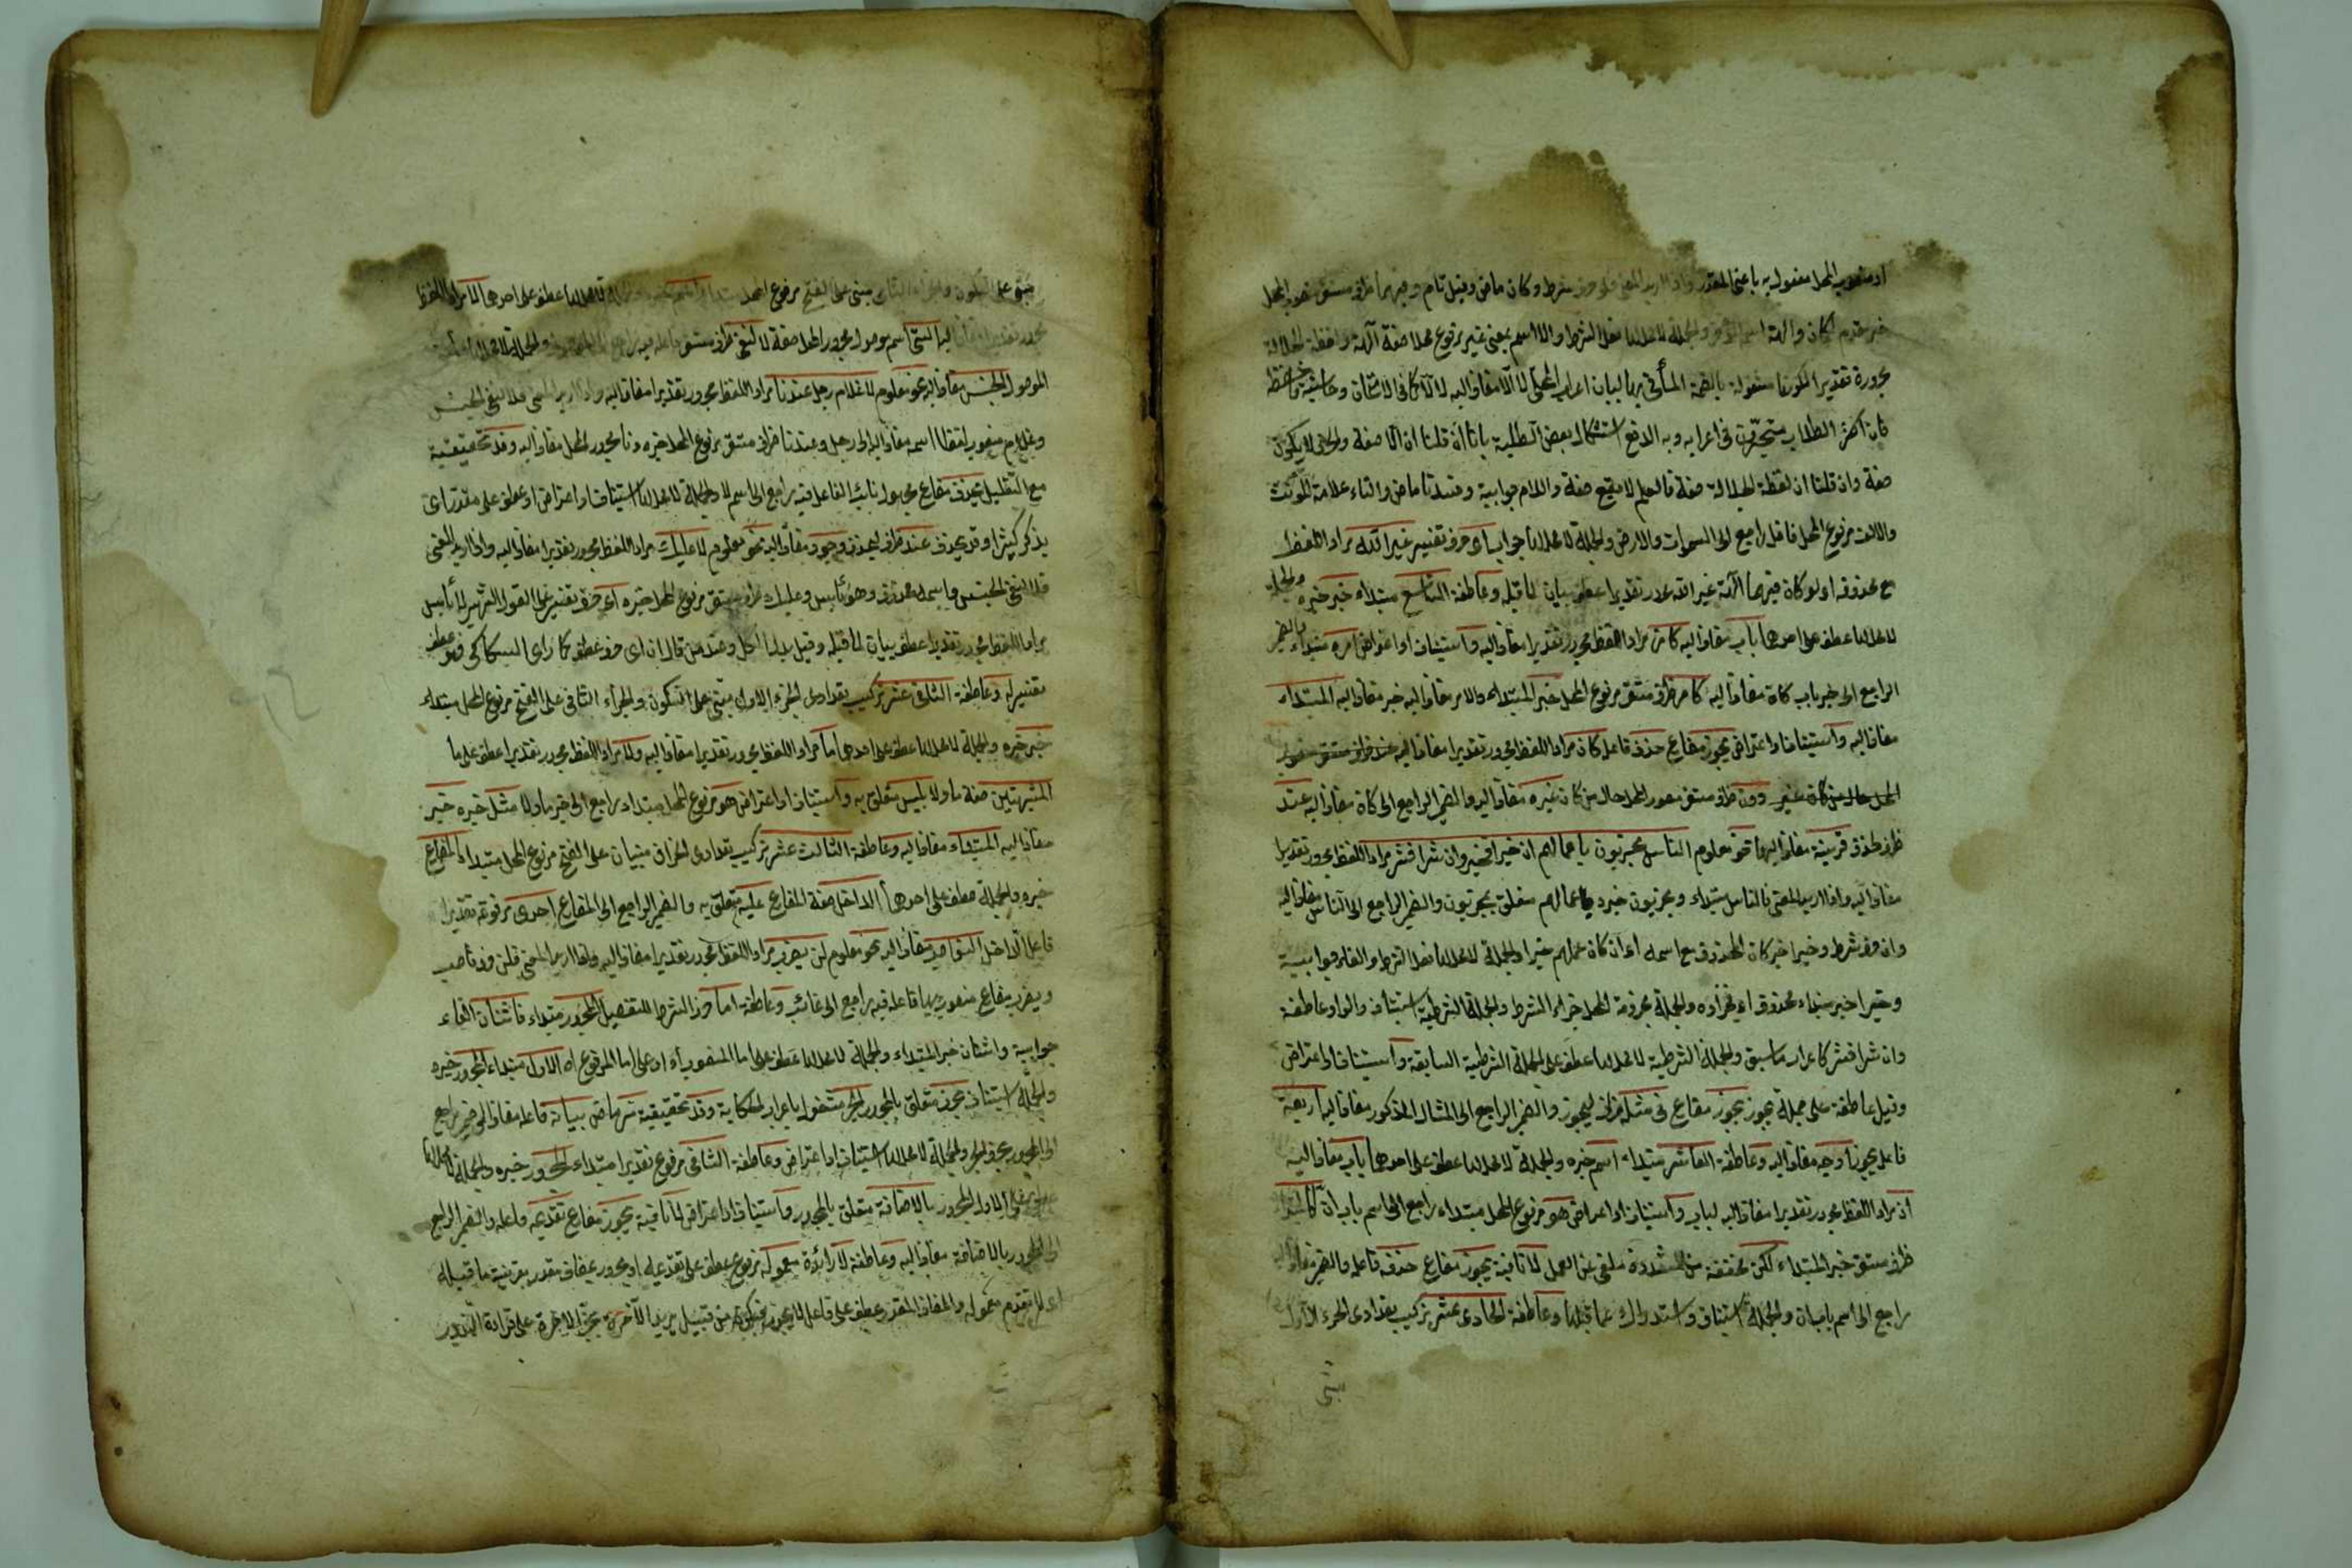 او منصوب المحل مفعول به باعنى المقدر واذا اريد المعنى فلو حرف شرط وكان ماض وقيل تام وفيهما ظرف مستقر منصوب المحل
خبر مقدم لكان والهة اسم المؤخر والجملة لا محل لها فعل الشرط والا اسم بمعنى غير مرفوع محلا صفة آلهة ولفظة الجلالة
مجرورة تقديرا لكونها مشغولة بالضمة المأتى بها لبيان اعراب المحلى لا الا مضاف اليه لالا كما فى الامتحان وحاشيته
فان اكثر الطلاب متحيرون فى اعرابه وبه اندفع استشكال بعض الطلبة بانا ان قلنا ان الا صفة والحرف لا يكون
صفة وان قلنا ان لفظة الجلالة صفة فالعلم لا يقع صفة واللام جوابية وفسدتا ماض والتاء علامة المؤنث
والالف مرفوع المحل فاعل راجع الى السموات والارض والجملة لا محل لها جواب اى حرف تفسير غير الله مراد اللفظ
مع محذوفه اى لو كان فيهما آلهة غير الله مجرور تقديرا عطف بيان لما قبله وعاطفة التاسع مبتداء خبر خبره والجملة
لا محل لها عطف على احدها باب مضاف اليه كان مراد اللفظ مجرور تقديرا مضاف اليه واستيناف او اعتراض امره مبتداء والضمير
الراجع الى خبر باب كان مضاف اليه كامر ظرف مستقر مرفوع المحل خبر المبتداء والامر مضاف اليه خبر مضاف اليه المبتداء
مضاف اليه واستيناف او اعتراض يجوز مضارع حذف فاعل كان مراد اللفظ مجرور تقديرا مضاف اليه عند ظرف مستقر منصوب
المحل حال من كان غير دون ظرف مستقر منصوب المحل حال من كان غيره مضاف اليه والضمير الراجع الى كان مضاف اليه عند
ظرف لحذف قرينة مضاف اليها نحو معلوم الناس مجزيون باعمالهم ان خيرا فخير وان شرا فشر مراد اللفظ مجرور تقديرا
مضاف اليه واذا اريد المعنى فالناس مبتداء ومجزيون خبره باعمالهم متعلق بمجزيون والضمير الراجع الى الناس مضاف اليه
وان حرف شرط وخيرا خبر كان المحذوف مع اسمه اى ان كان عملهم خيرا والجملة لا محل لها فعل الشرط والفاء جوابية
وخير خبر مبتداء محذوف اى فجزاؤه والجملة مجزومة المحل جزاء الشرط والجملة الشرطية استيناف والواو عاطفة
وان شرا فشر كاعراب ماسبق والجملة الشرطية لا محل لها عطف على الجملة الشرطية السابقة واستيناف او اعتراض
وقيل عاطفة على جملة يجوز يجوز مضارع فى مثله ظرف ليجوز والضمير الراجع الى المثال المذكور مضاف اليه اربعة
فاعل يجوز اوجه مضاف اليه وعاطفة العاشر مبتداء اسم خبره والجملة لا محل لها عطف على احدها باب مضاف اليه
ان مراد اللفظ مجرور تقديرا مضاف اليه لباب واستيناف او اعتراض هو مرفوع المحل مبتداء راجع الى اسم باب ان كالمبتداء
ظرف مستقر خبر المبتداء لكن مخففة من المشددة ملغى عن العمل لا نافية يجوز مضارع حذفه فاعله والضمير مضاف اليه
راجع الى اسم باب ان والجملة استيناف واستدراك عما قبلها وعاطفة الحادى عشر تركيب تعدادى الجزء الاول
مبنى
مبنى على السكون والجزء الثانى مبنى على الفتح مرفوع المحل مبتداء لا محل لها عطف على احدها لا مراد اللفظ
مجرور تقديرا مضاف اليه التى اسم موصول مجرور المحل صفة لا لنفى ظرف مستقر فاعله فيه راجع الى الموصول والجملة لا محل لها
الموصول الجنس مضاف اليه نحو معلوم لا غلام رجل عندنا مراد اللفظ مجرور تقديرا مضاف اليه واذا اريد المعنى فلا لنفى الجنس
وغلام منصوب لفظا اسمه مضاف اليه الى رجل وعندنا ظرف مستقر مرفوع المحل خبره ونا مجرور المحل مضاف اليه وقد تحقيقية
مع التقليل يحذف مضارع مجهول نائب الفاعل فيه راجع الى اسم لا والجملة لا محل لها استيناف او اعتراض او عطف على مقدر اى
يذكر كثيرا وقد يحذف عند ظرف ليحذف وجود مضاف اليه نحو معلوم لا عليك مراد اللفظ مجرور تقديرا مضاف اليه واذا اريد المعنى
فلا لنفى الجنس واسمه محذوف وهو بأس وعليك ظرف مستقر مرفوع المحل خبره اى حرف تفسير على القول الشهير لا بأس
مراد اللفظ مجرور تقديرا عطف بيان لما قبله وقيل بدل الكل وعند من قال ان اى حرف عطف كما رأى السكاكى فهو عطف
تفسير له وعاطفة الثانى عشر تركيب تعدادى الجزء الاول مبنى على السكون والجزء الثانى على الفتح مرفوع المحل مبتداء
خبر خبره والجملة لا محل لها عطف على احدها ما مراد اللفظ مجرور تقديرا مضاف اليه ولا مراد اللفظ مجرور تقديرا عطف على ما
المشبهتين صفة ما ولا بليس متعلق به واستيناف او اعتراض هو مرفوع المحل مبتداء راجع الى خبر ما ولا مثل خبره خبر
مضاف اليه المبتداء مضاف اليه وعاطفة الثالث عشر تركيب تعدادى الجزآن مبنيان على الفتح مرفوع المحل مبتداء المضارع
خبره والجملة عطف على احدها الداخل صفة المضارع عليه متعلق به والضمير الراجع الى المضارع احدى مرفوعة تقديرا
فاعل الداخل النواصب مضاف اليه نحو معلوم لن يضرب مراد اللفظ مجرور تقديرا مضاف اليه واذا اريد المعنى فلن حرف ناصب
ويضرب مضارع منصوب بها فاعله فيه راجع الى غائب وعاطفة اما حرف الشرط للتفصيل المجرور مبتداء فاثنان الفاء
جوابية واثنان خبر المبتداء والجملة لا محل لها عطف على اما المنصوب او على اما المرفوع الاول مبتداء المجرور خبره
والجملة استيناف بحرف متعلق بالمجرور الجر مشغول باعراب الحكاية وقد تحقيقية مر ماض بيانه فاعله مضاف الى ضمير راجع
الى المجرور بحرف الجر والجملة لا محل لها استيناف او اعتراض وعاطفة الثانى مرفوع تقديرا مبتداء المجرور خبره والجملة لا محل لها
عطف على الاول المجرور بالاضافة متعلق بالمجرور واستيناف او اعتراض لا نافية يجوز مضارع تقديمه فاعله والضمير الراجع
الى المجرور بالاضافة مضاف اليه وعاطفة لا زائدة معموله مرفوع عطف على تقديمه او مجرور بمضاف مقدر بقرينة ما قبله
اى لا تقديم معموله والمضاف المقدر عطف على فاعل لا يجوز فيكون من قبيل يريد الآخرة بجر الاخرة على قراءة